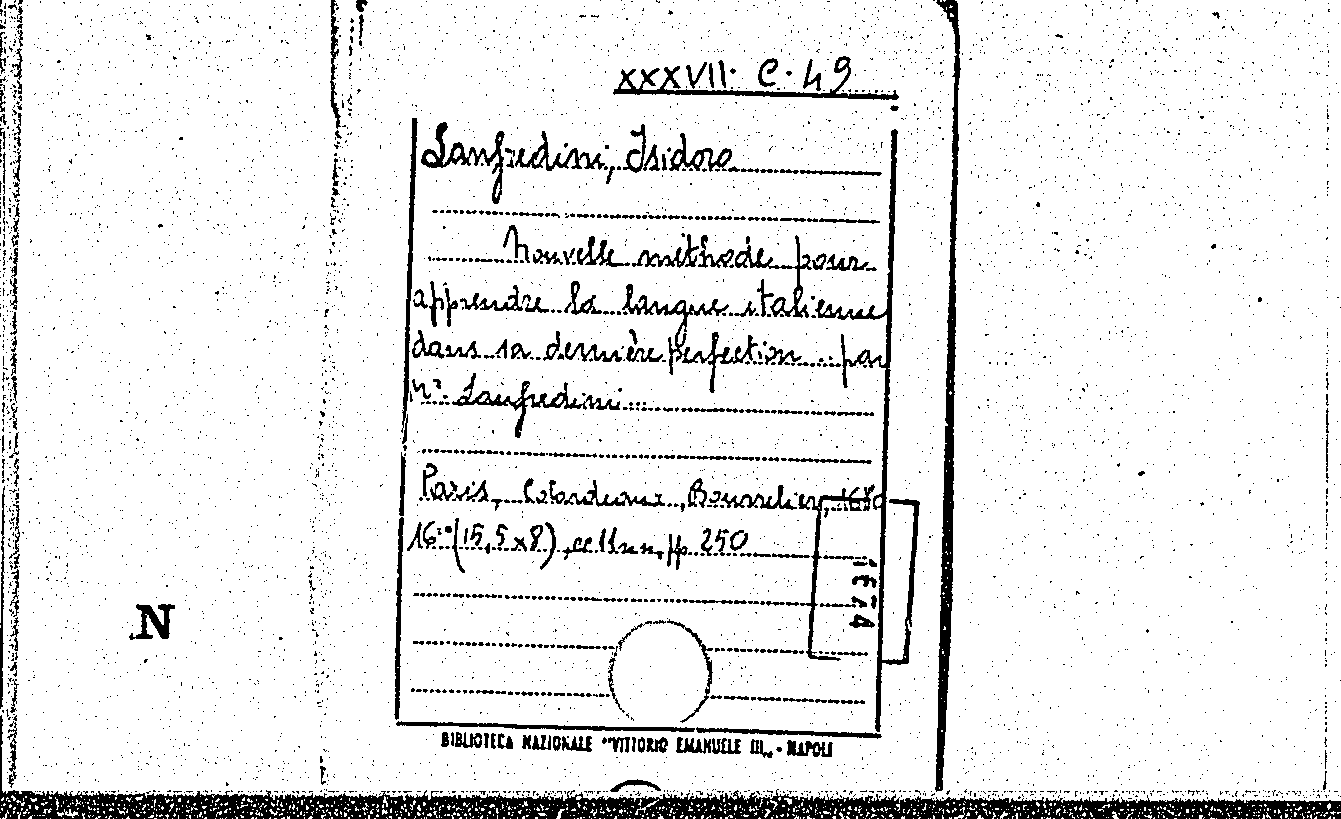 XXXVII. C. 49
Lanfredini, Isidoro
Nouvelle méthode pour
apprendre la langue italienne
dans sa dernière perfection .. par
Mr. Lanfredini...
Paris, Cotardeaux, Bousselier, 1680
16.° (15,5x8), cc 11 nn, pp 250
N
BIBLIOTECA NAZIONALE "VITTORIO EMANUELE III" - NAPOLI